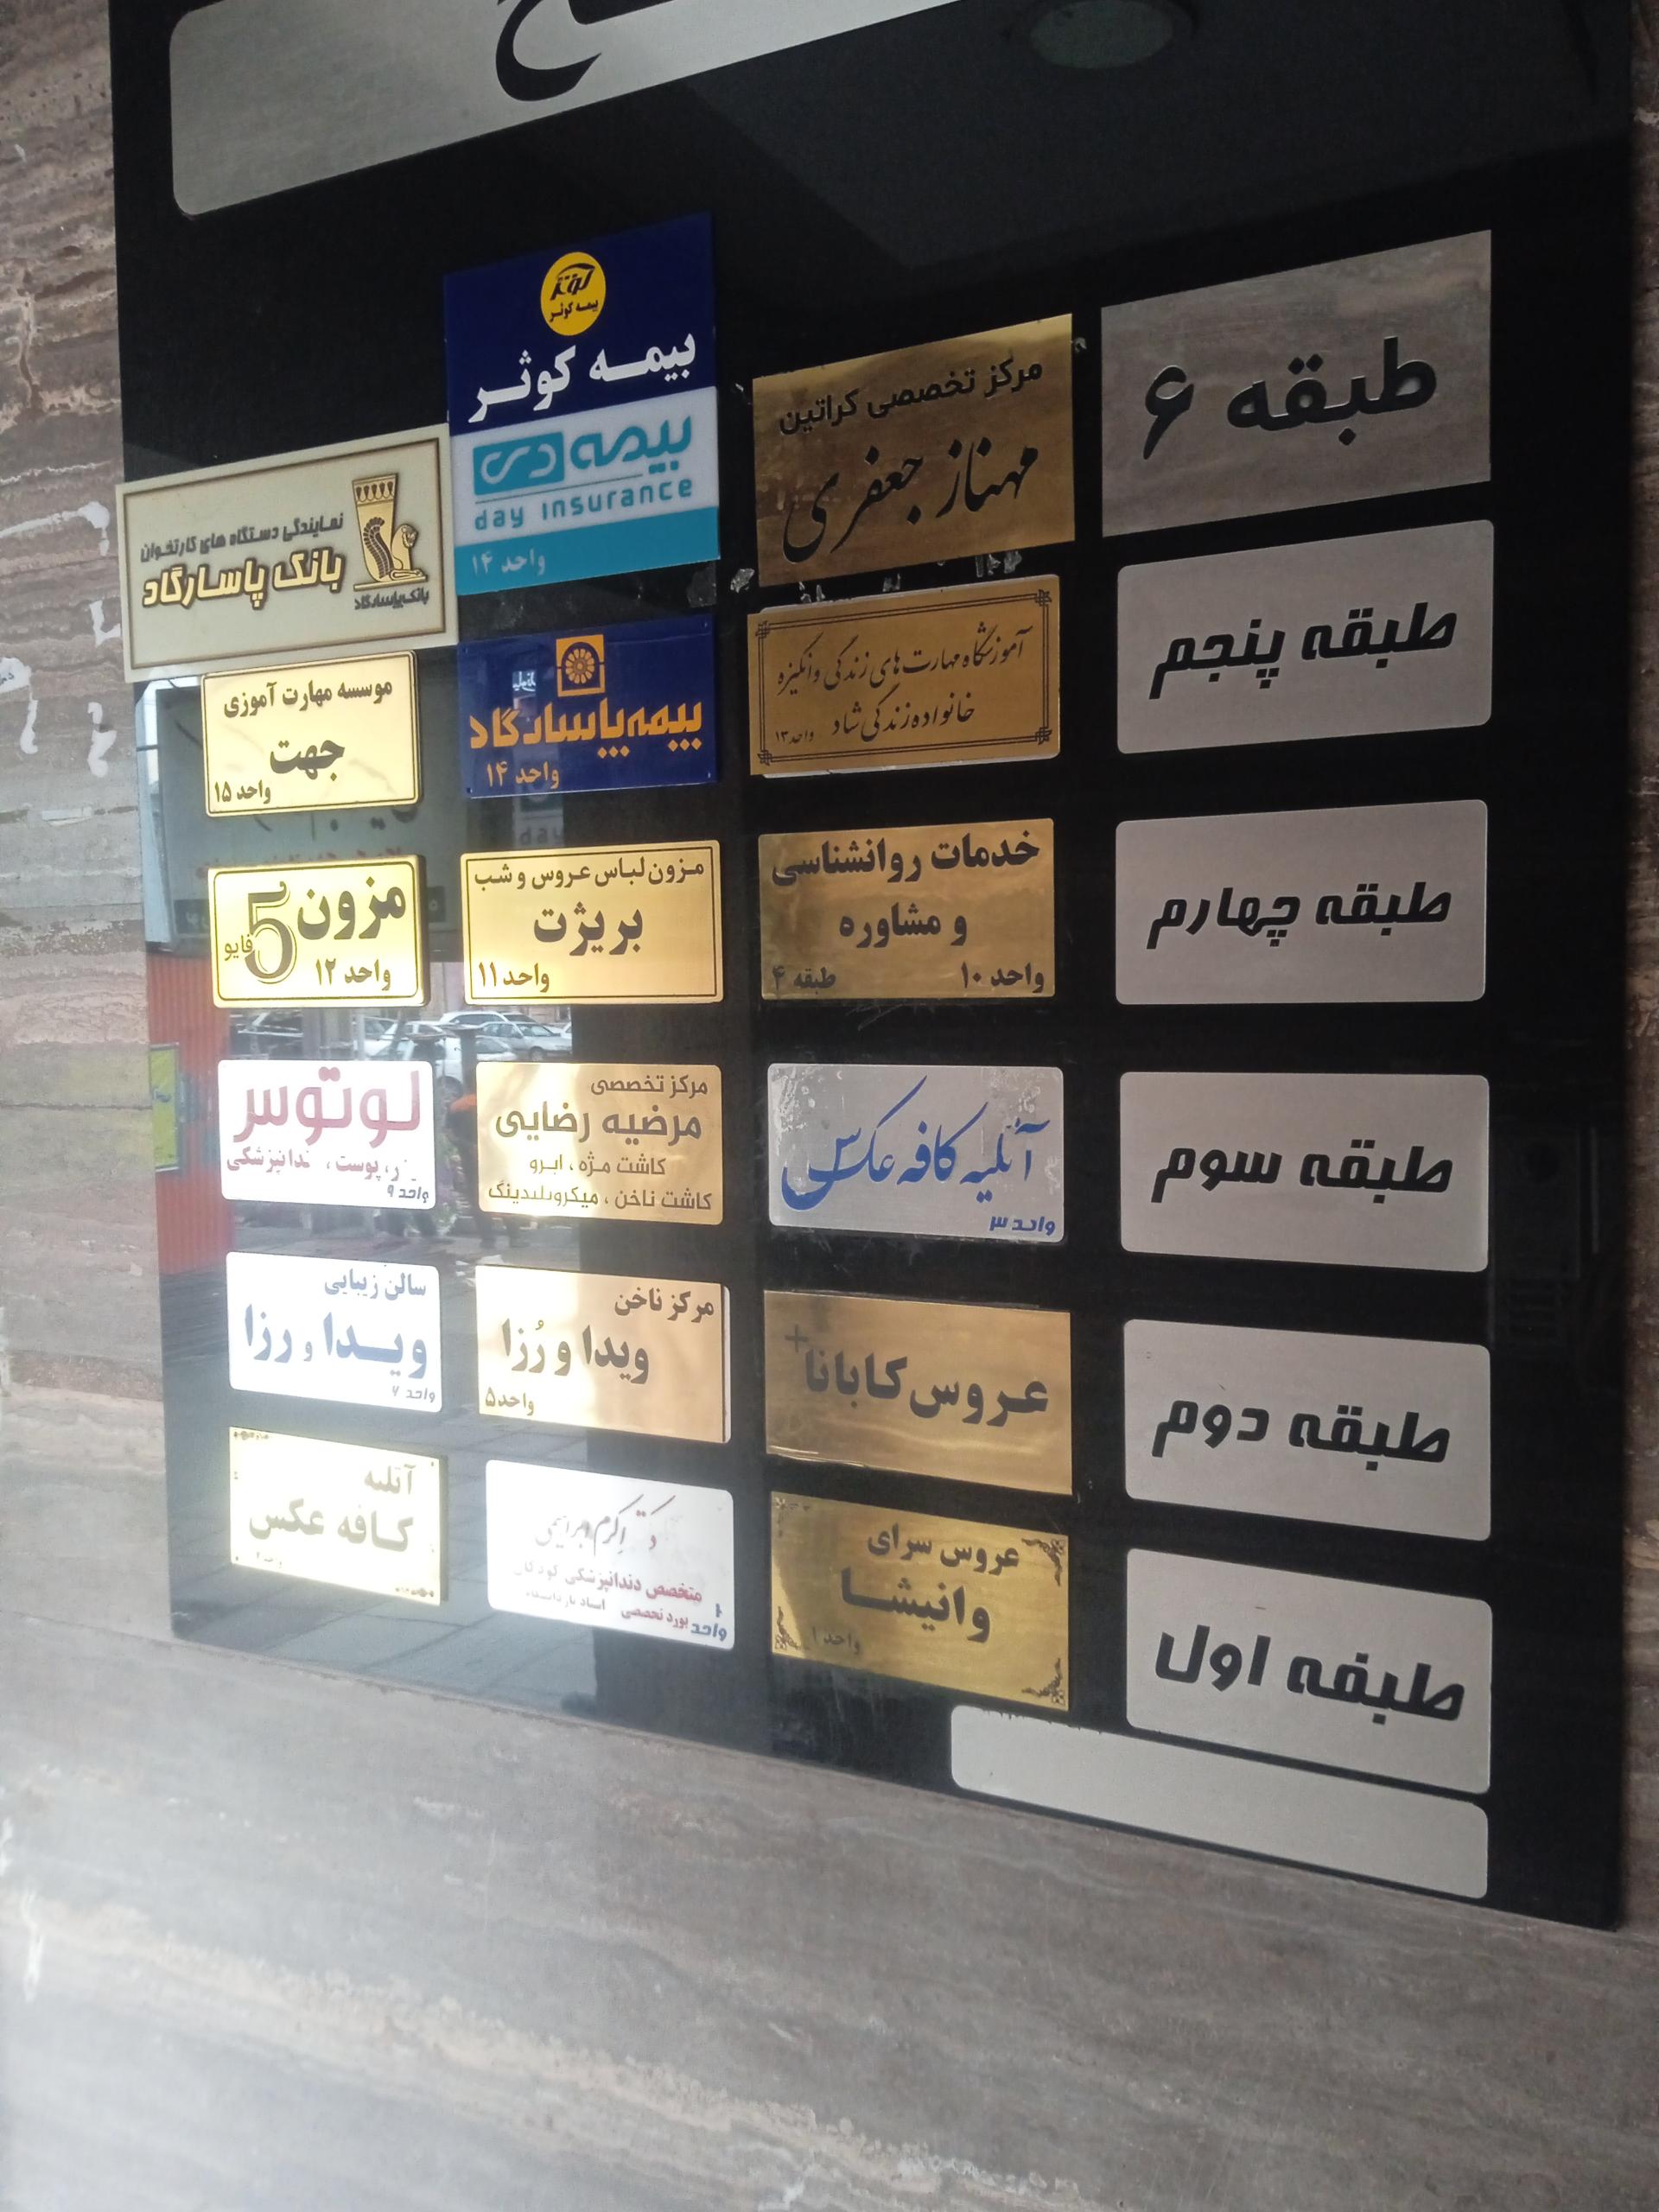 طبقه ۶
مرکز تخصصی کراتین
مهناز جعفری
بیمه کوثر
بیمه کوثر
بیمه دی
day insurance
واحد ۱۴
نمایندگی دستگاه های کارتخوان
بانک پاسارگاد
بانک پاسارگاد
طبقه پنجم
آموزشگاه مهارت های زندگی وانگیزه
خانواده زندگی شاد
واحد ۱۳
بیمه پاسارگاد
واحد ۱۴
موسسه مهارت آموزی
جهت
واحد ۱۵
طبقه چهارم
خدمات روانشناسی
و مشاوره
واحد ۱۰ طبقه ۴
مزون لباس عروس و شب
بریژت
واحد ۱۱
مزون 5 فایو
واحد ۱۲
طبقه سوم
آتلیه کافه عکس
واحد ۳
مرکز تخصصی
مرضیه رضایی
کاشت مژه ، ابرو
کاشت ناخن ، میکروبلیدینگ
لوتوس
پوست ،
واحد ۹
طبقه دوم
عروس کابانا
مرکز ناخن
ویدا و رُزا
واحد ۵
سالن زیبایی
ویدا و رزا
واحد ۶
طبقه اول
عروس سرای
وانیشا
واحد ۱
اکرم
متخصص دندانپزشکی کودکان
بورد تخصصی
واحد
آتلیه
کافه عکس